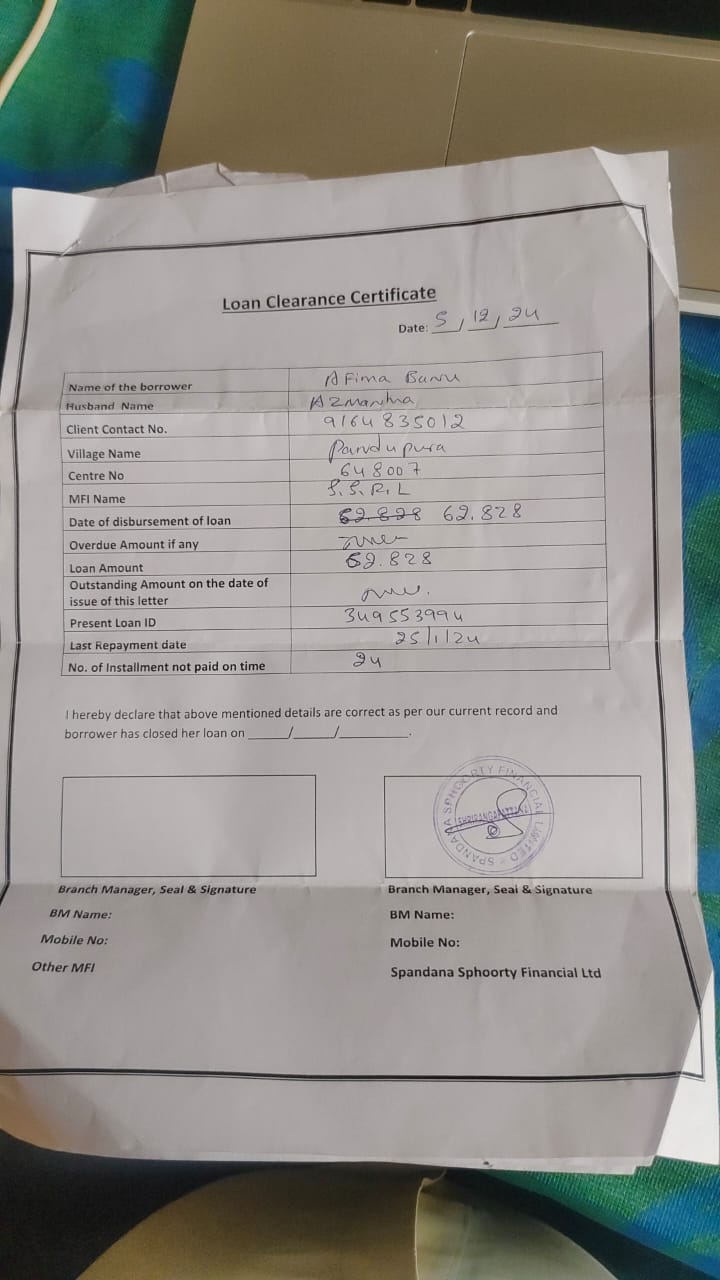 Loan Clearance Certificate
Date: 5 / 12 / 24
Name of the borrower Afima Banu
Husband Name
Client Contact No. 9164835012
Village Name Pandupura
Centre No 648007
MFI Name S.S.F.L
Date of disbursement of loan 62.828 62.828
Overdue Amount if any
Loan Amount 62.828
Outstanding Amount on the date of
issue of this letter
Present Loan ID 349553994
Last Repayment date 25/1/24
No. of Installment not paid on time 24
I hereby declare that above mentioned details are correct as per our current record and
borrower has closed her loan on ____/____/________.
SPANDANA SPHOORTY FINANCIAL LIMITED
SHRIRANGAPATTANA
Branch Manager, Seal & Signature
BM Name:
Mobile No:
Other MFI
Branch Manager, Seal & Signature
BM Name:
Mobile No:
Spandana Sphoorty Financial Ltd